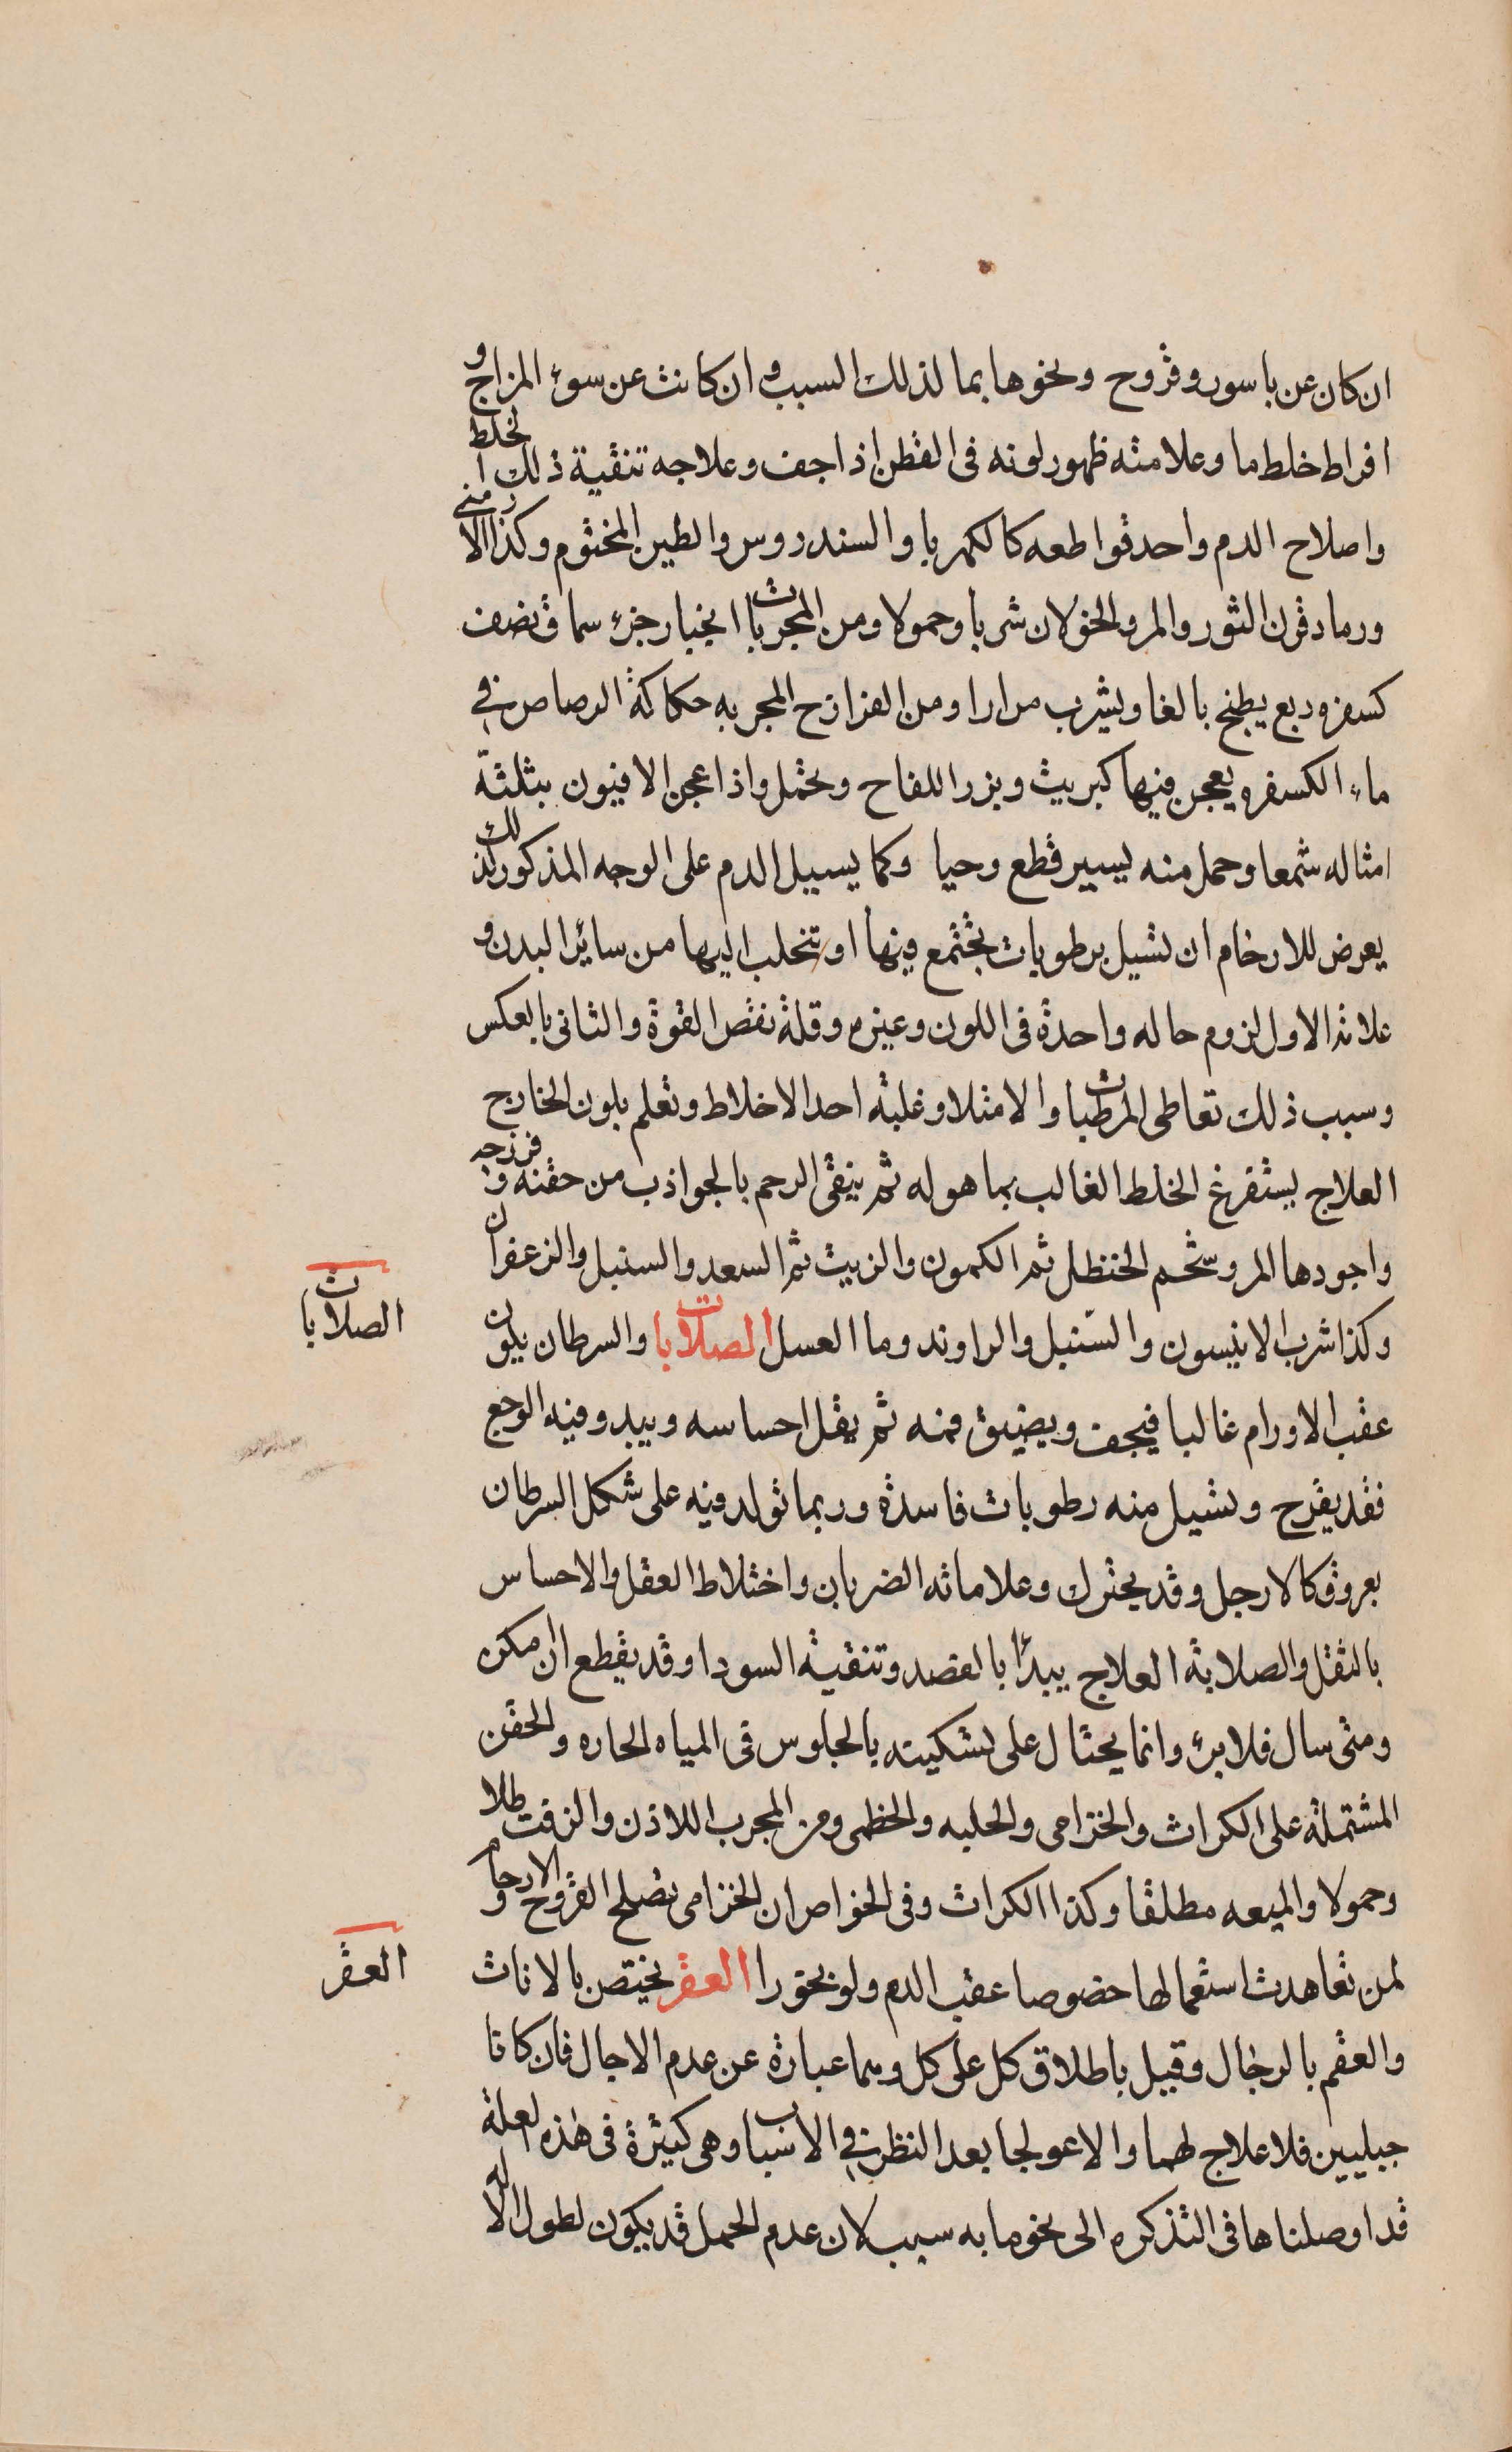 ان كان عن باسور وقروح ونحوها بما لذلك السبب وان كانت عن سوء المزاج و
افراط خلط ما وعلامته ظهور لونه فى القطن اذا جف وعلاجه تنقية ذلك الخلط
واصلاح الدم واحد قواطعه كالكهربا والسندروس والطين المختوم وكذا الارمنى
ورماد قرن الثور والمر والخولان شربا وحمولا ومن المجربات انجبار جزء سماق نصف
كسفره ربع يطبخ بالغا ويشرب مرارا ومن الفرازح المجربه حكاكة الرصاص فى
ماء الكسفره يعجن فيها كبريت وبزر اللفاح وتحتمل واذا عجن الافيون بثلثة
امثاله شمعا وحمل منه يسير قطع وحيا وكما يسيل الدم على الوجه المذكور كذلك
يعرض للارحام ان تسيل برطوبات تجتمع فيها او تتحلب اليها من سائر البدن و
علامة الاول لزوم حاله واحدة فى اللون وغيره وقلة نقص القوة والثانى بالعكس
وسبب ذلك تعاطى المرطبات والامتلا وغلبة احد الاخلاط وتعلم بلون الخارج
العلاج يستفرغ الخلط الغالب بما هو له ثم ينقى الرحم بالجواذب من حقنه وفرزجه
واجودها المر وشحم الحنظل ثم الكمون والزبيت ثم السعد والسنبل والزعفران
وكذا شرب الانيسون والسنبل والراوند وما العسل الصلابات والسرطان يكون
الصلابات
عقب الاورام غالبا فيجف ويضيق فمه ثم يقل احساسه ويبدو فيه الوجع
فقد يقرح وتسيل منه رطوبات فاسدة وربما تولد فيه على شكل السرطان
بعروق كالارجل وقد يحترك وعلاماته الضربان واختلاط العقل والاحساس
بالثقل والصلابة العلاج يبدأ بالفصد وتنقية السودا وقد يقطع ان امكن
ومتى سال فلا برء وانما يحتال على تسكينه بالجلوس فى المياه الحاره والحقن
المشتملة على الكراث والخزامى والحلبه والخطمى ومن المجرب اللاذن والزفت طلا
وحمولا والميعه مطلقا وكذا الكراث وفى الخواص ان الخزامى تصلح القروح والارحام
لمن تعاهدت استعمالها خصوصا عقب الدم ولو بخورا العقر يختص بالاناث
العقر
والعقم بالرجال وقيل باطلاق كل على كل وهما عبارة عن عدم الاحبال فان كانا
جبليين فلا علاج لهما والا عولجا بعد النظر فى الاسباب وهى كثيرة فى هذه العلة
قد اوصلناها فى التذكره الى نحو مايه سبب لان عدم الحمل قد يكون لطول الاله